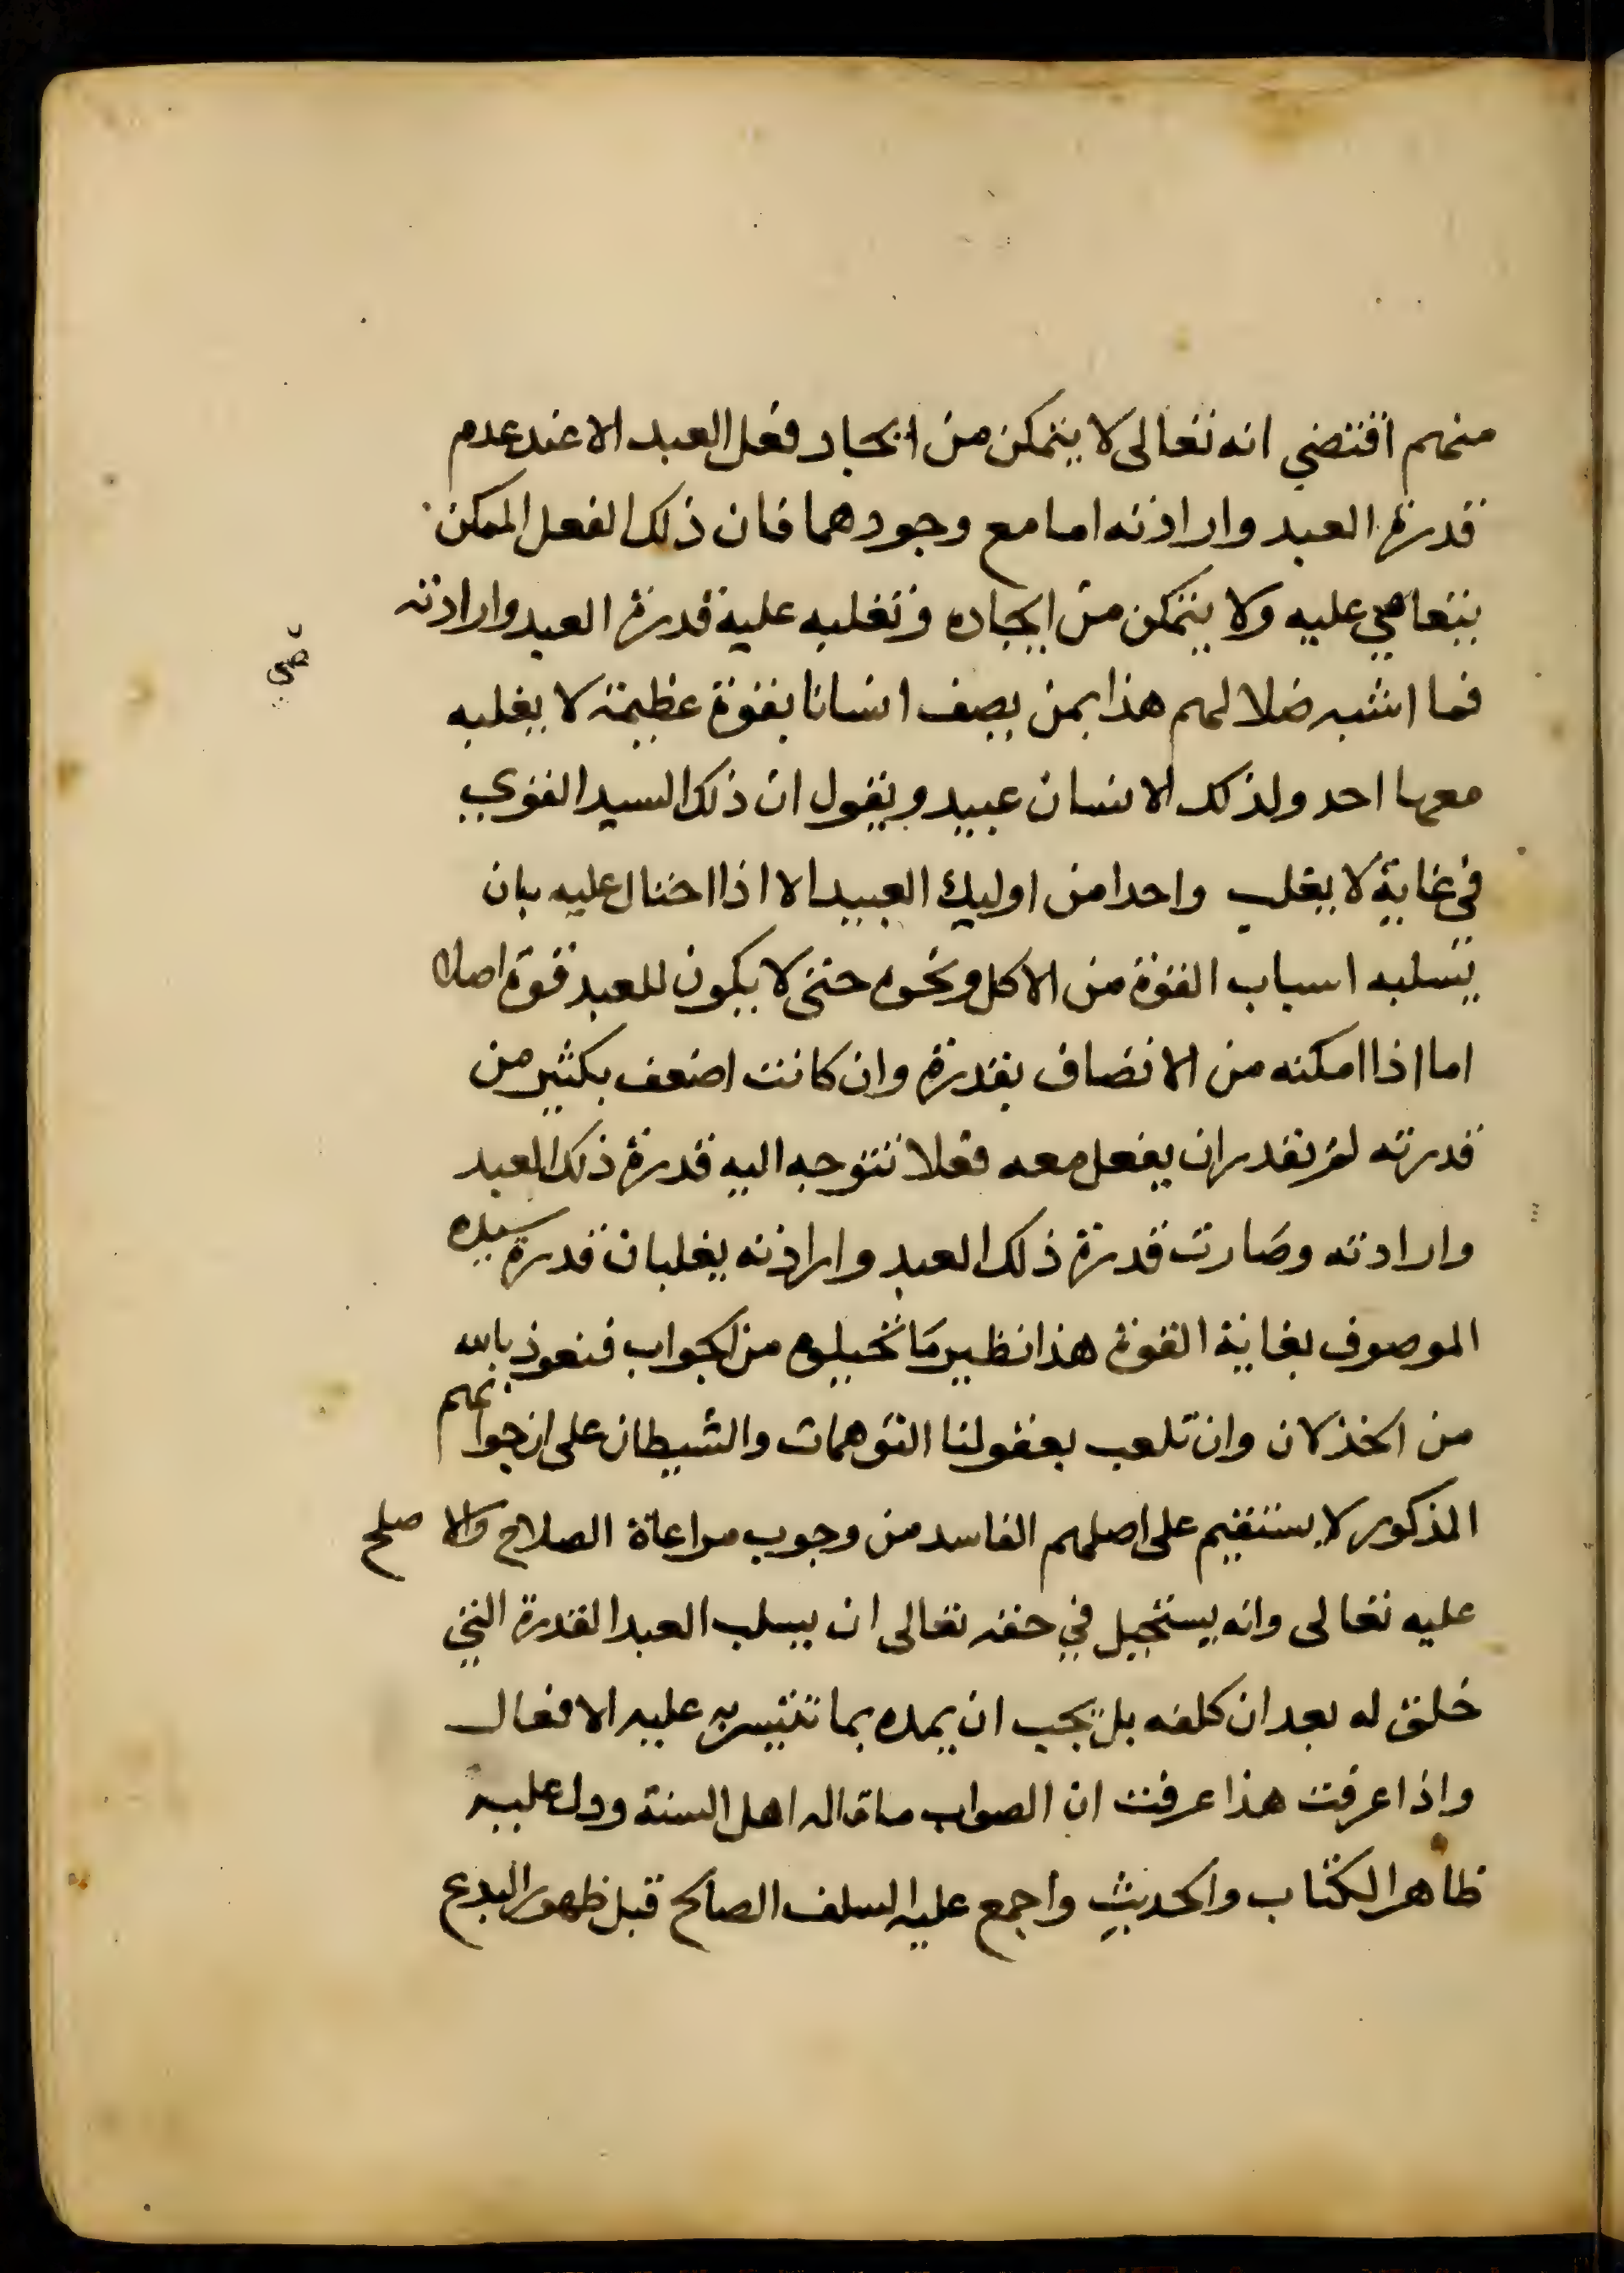 منهم اقتضي انه تعالى لا يتمكن من ايجاد فعل العبد الا عند عدم
قدرة العبد وارادته اما مع وجودهما فان ذلك الفعل الممكن
يتعاصي عليه ولا يتمكن من ايجاده وتغلبه عليه قدرة العبد وارادته
صي
فما اشبه ضلالهم هذا بمن يصف انسانا بقوة عظيمة لا يغلبه
معها احد ولذلك الانسان عبيد ويقول ان ذلك السيد القوي
في غاية لا يغلب واحدا من اوليك العبيد الا اذا احتال عليه بان
يسلبه اسباب القوة من الاكل ونحوه حتى لا يكون للعبد قوة اصلا
اما اذا امكنه من الاتصاف بقدرة وان كانت اضعف بكثير من
قدرته لم يقدر ان يفعل معه فعلا تتوجه اليه قدرة ذلك العبد
وارادته وصارت قدرة ذلك العبد وارادته يغلبان قدرة سيده
الموصوف بغاية القوة هذا نظير ما تخيلوه من الجواب فنعوذ بالله
من الخذلان وان تلعب بعقولنا التوهمات والشيطان على ان جوابهم
المذكور لا يستقيم على اصلهم الفاسد من وجوب مراعاة الصلاح والاصلح
عليه تعالى وانه يستحيل في حقه تعالى ان يسلب العبد القدرة التي
خلق له بعد ان كلفه بل يجب ان يمده بما تتيسر به عليه الافعال
واذا عرفت هذا عرفت ان الصواب ما قاله اهل السنة ودل عليه
ظاهر الكتاب والحديث واجمع عليه السلف الصالح قبل ظهور البدع